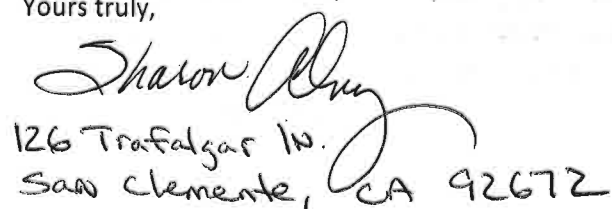 Yours truly,
Sharon
126 Trafalgar ln.
San Clemente, CA 92672